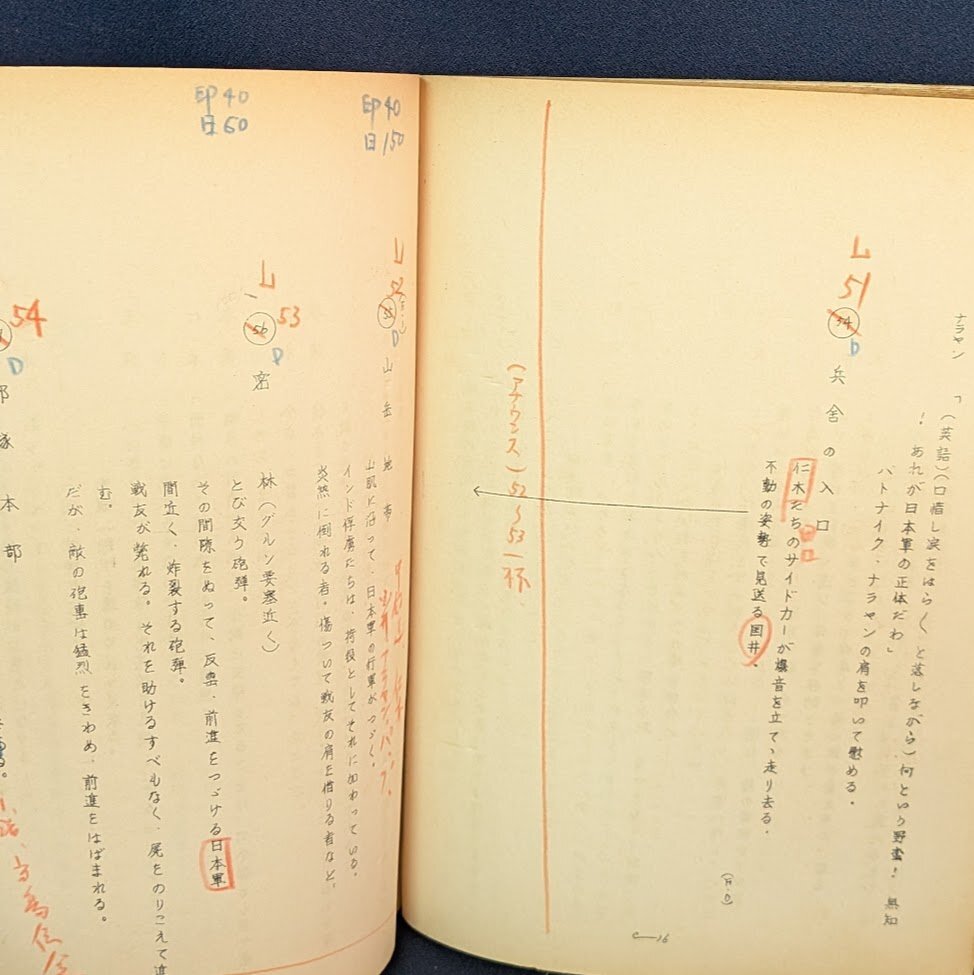 ナラヤン「(英語)(口惜し涙をはらくと落しながら)何という野蛮! 無知
! あれが日本軍の正体だわ」
パトナイク、ナラヤンの肩を叩いて慰める。
山
51
54
D
兵舎の入口
仁木たちのサイドカーが爆音を立てゝ走り去る。
田口
不動の姿勢で見送る国井。
(F・O)
(アナウンス)52〜53一杯
C—16
印40
日150
山
52
55
D
山岳地帯
山肌に沿って、日本軍の行軍がつづく。
インド俘虜たちは、荷役としてそれに加わっている。
突然に倒れる者・傷ついて戦友の肩を借りる者など。
印40
日60
山
53
56
D
密林(グルン要塞近く)
とび交う砲弾。
その間隙をぬって、反撃、前進をつづける日本軍
間近く、炸裂する砲弾。
戦友が斃れる。それを助けるすべもなく、屍をのりこえて進
む。
だが、敵の砲撃は猛烈をきわめ、前進をはばまれる。
54
D
部隊本部